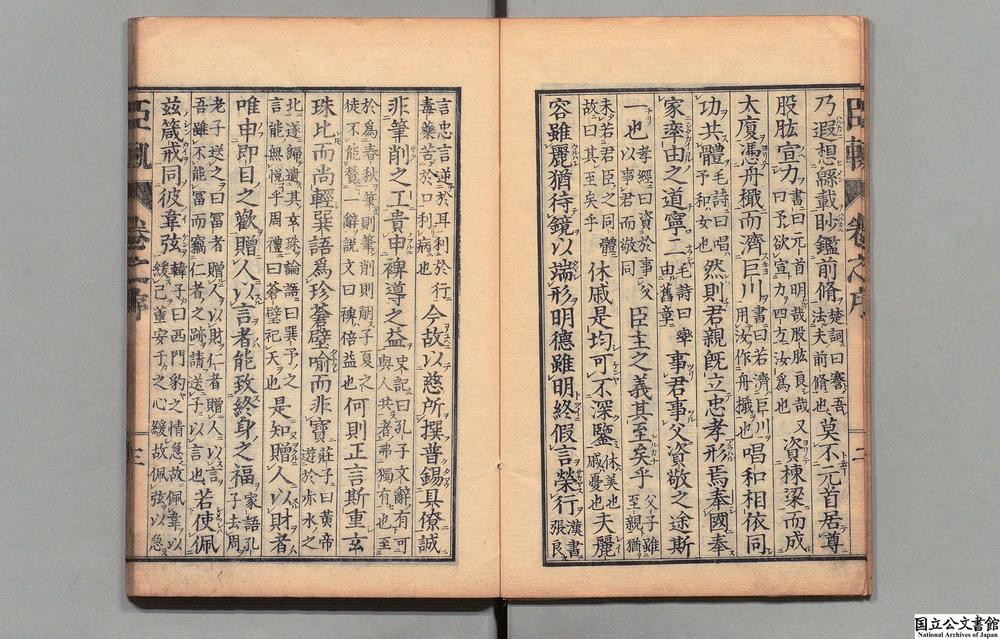 乃遐想緜載眇鑑前脩楚詞曰謇吾法夫前脩也莫不元首居尊
股肱宣力書曰元首明哉股肱良哉又曰予欲宣力四方汝爲也資棟梁而成
大廈憑舟檝而濟巨川書曰若濟巨川用汝作舟檝也唱和相依同
功共體毛詩曰唱予和女也然則君親既立忠孝形焉奉國奉
家率由之道寧二毛詩曰率由舊章事君事父資敬之途斯
一也孝經曰資於事父以事君而敬同臣主之義其至矣乎父子雖至親猶
未若君臣之同體故曰其至矣乎休戚是均可不深鑒休美也戚憂也夫麗
容雖麗猶待鏡以端形明德雖明終假言榮行漢書張良
言忠言逆於耳利於行毒藥苦於口利病也今故以慈所撰普錫具僚誠
非筆削之工貴申裨導之益史記曰孔子文辭有可與人共者弗獨有也至
於爲春秋筆則筆削則削子夏之徒不能贊一辭說文曰裨倍益也何則正言斯重玄
珠比而尚輕巽語爲珍蒼璧喻而非寶莊子曰黄帝遊於赤水之
北遂歸遺其玄珠論語曰巽予之言能無悅乎周禮曰蒼璧祀天也是知贈人以財者
唯申即目之歡贈人以言者能致終身之福家語孔子去周
老子送之曰冨者贈人以財仁者贈人以言吾雖不能冨而竊仁者之跡請送子以言也若使佩
兹箴戒同彼韋弦韓子曰西門豹之情急故佩韋以緩己董安于之心緩故佩弦以急
国立公文書館
National Archives of Japan